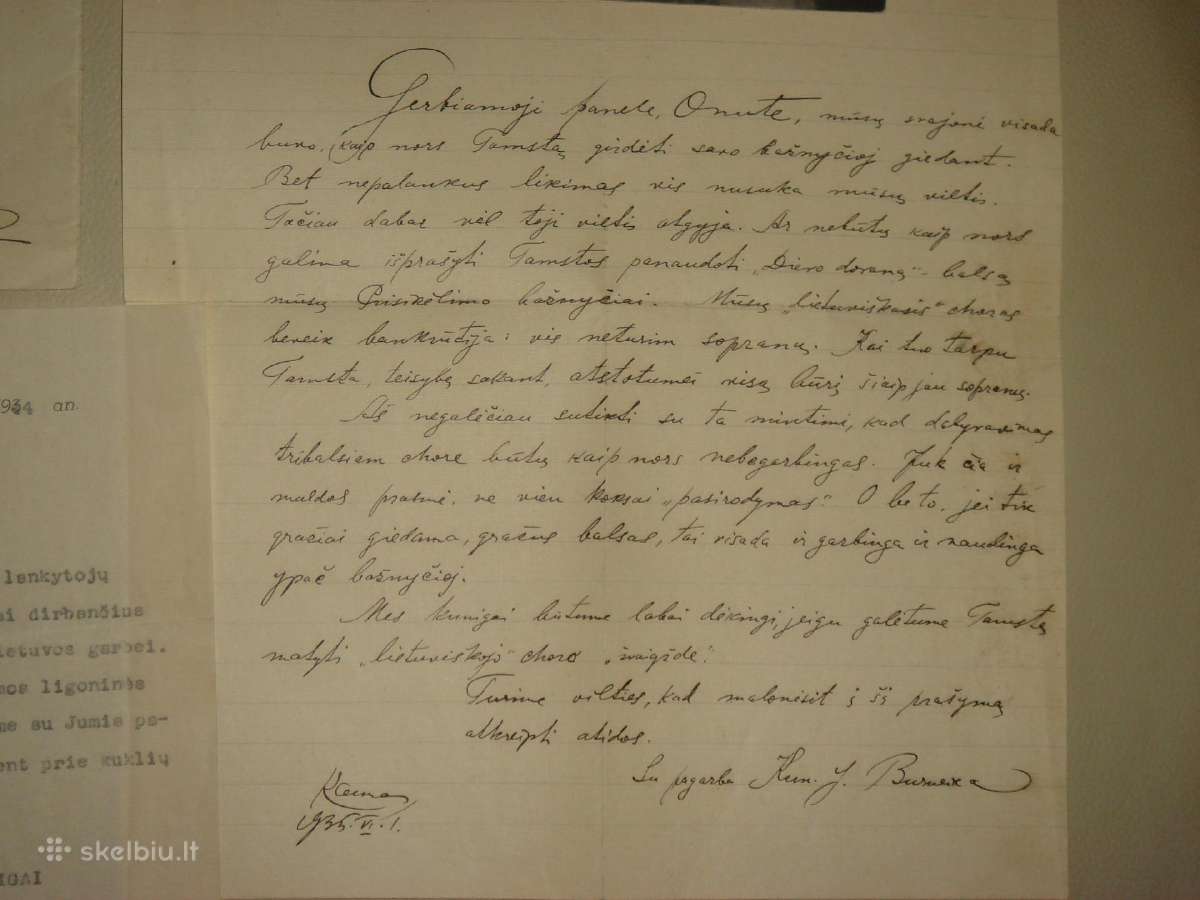 Gerbiamoji panele, Onute, mūsų svajonė visada
buvo, kaip nors Tamstą girdėti savo bažnyčioj giedant.
Bet nepalankus likimas vis nusuka mūsų viltis.
Tačiau dabar vėl toji viltis atgyja. Ar nebūtų kaip nors
galima išprašyti Tamstos panaudoti „Dievo dovaną" - balsą
mūsų Prisikėlimo bažnyčiai. Mūsų „lietuviškasis" choras
beveik bankrūtija: vis neturim sopranų. Kai tuo tarpu
Tamsta, teisybę sakant, atstotumėi visą būrį šiaip jau sopranų.
Aš negalėčiau sutikti su ta mintimi, kad dalyvavimas
tribalsiam chore būtų kaip nors nebegarbingas. Juk čia ir
maldos prasmė, ne vien koksai „pasirodymas". O be to, jei tik
gražiai giedama, gražus balsas, tai visada ir garbinga ir naudinga
ypač bažnyčioj.
Mes kunigai būtume labai dėkingi, jeigu galėtume Tamstą
matyti „lietuviškojo" choro „žvaigžde".
Turime vilties, kad malonėsit į šį prašymą
atkreipti atidos.
Su pagarba Kun. J. Burneika
Kaunas
1935.VI.1.
1934 an.
lankytojų
ei dirbančius
ietuvos garbei.
nos ligoninės
me su Jumis pa-
ent prie kuklių
IGAI
skelbiu.lt